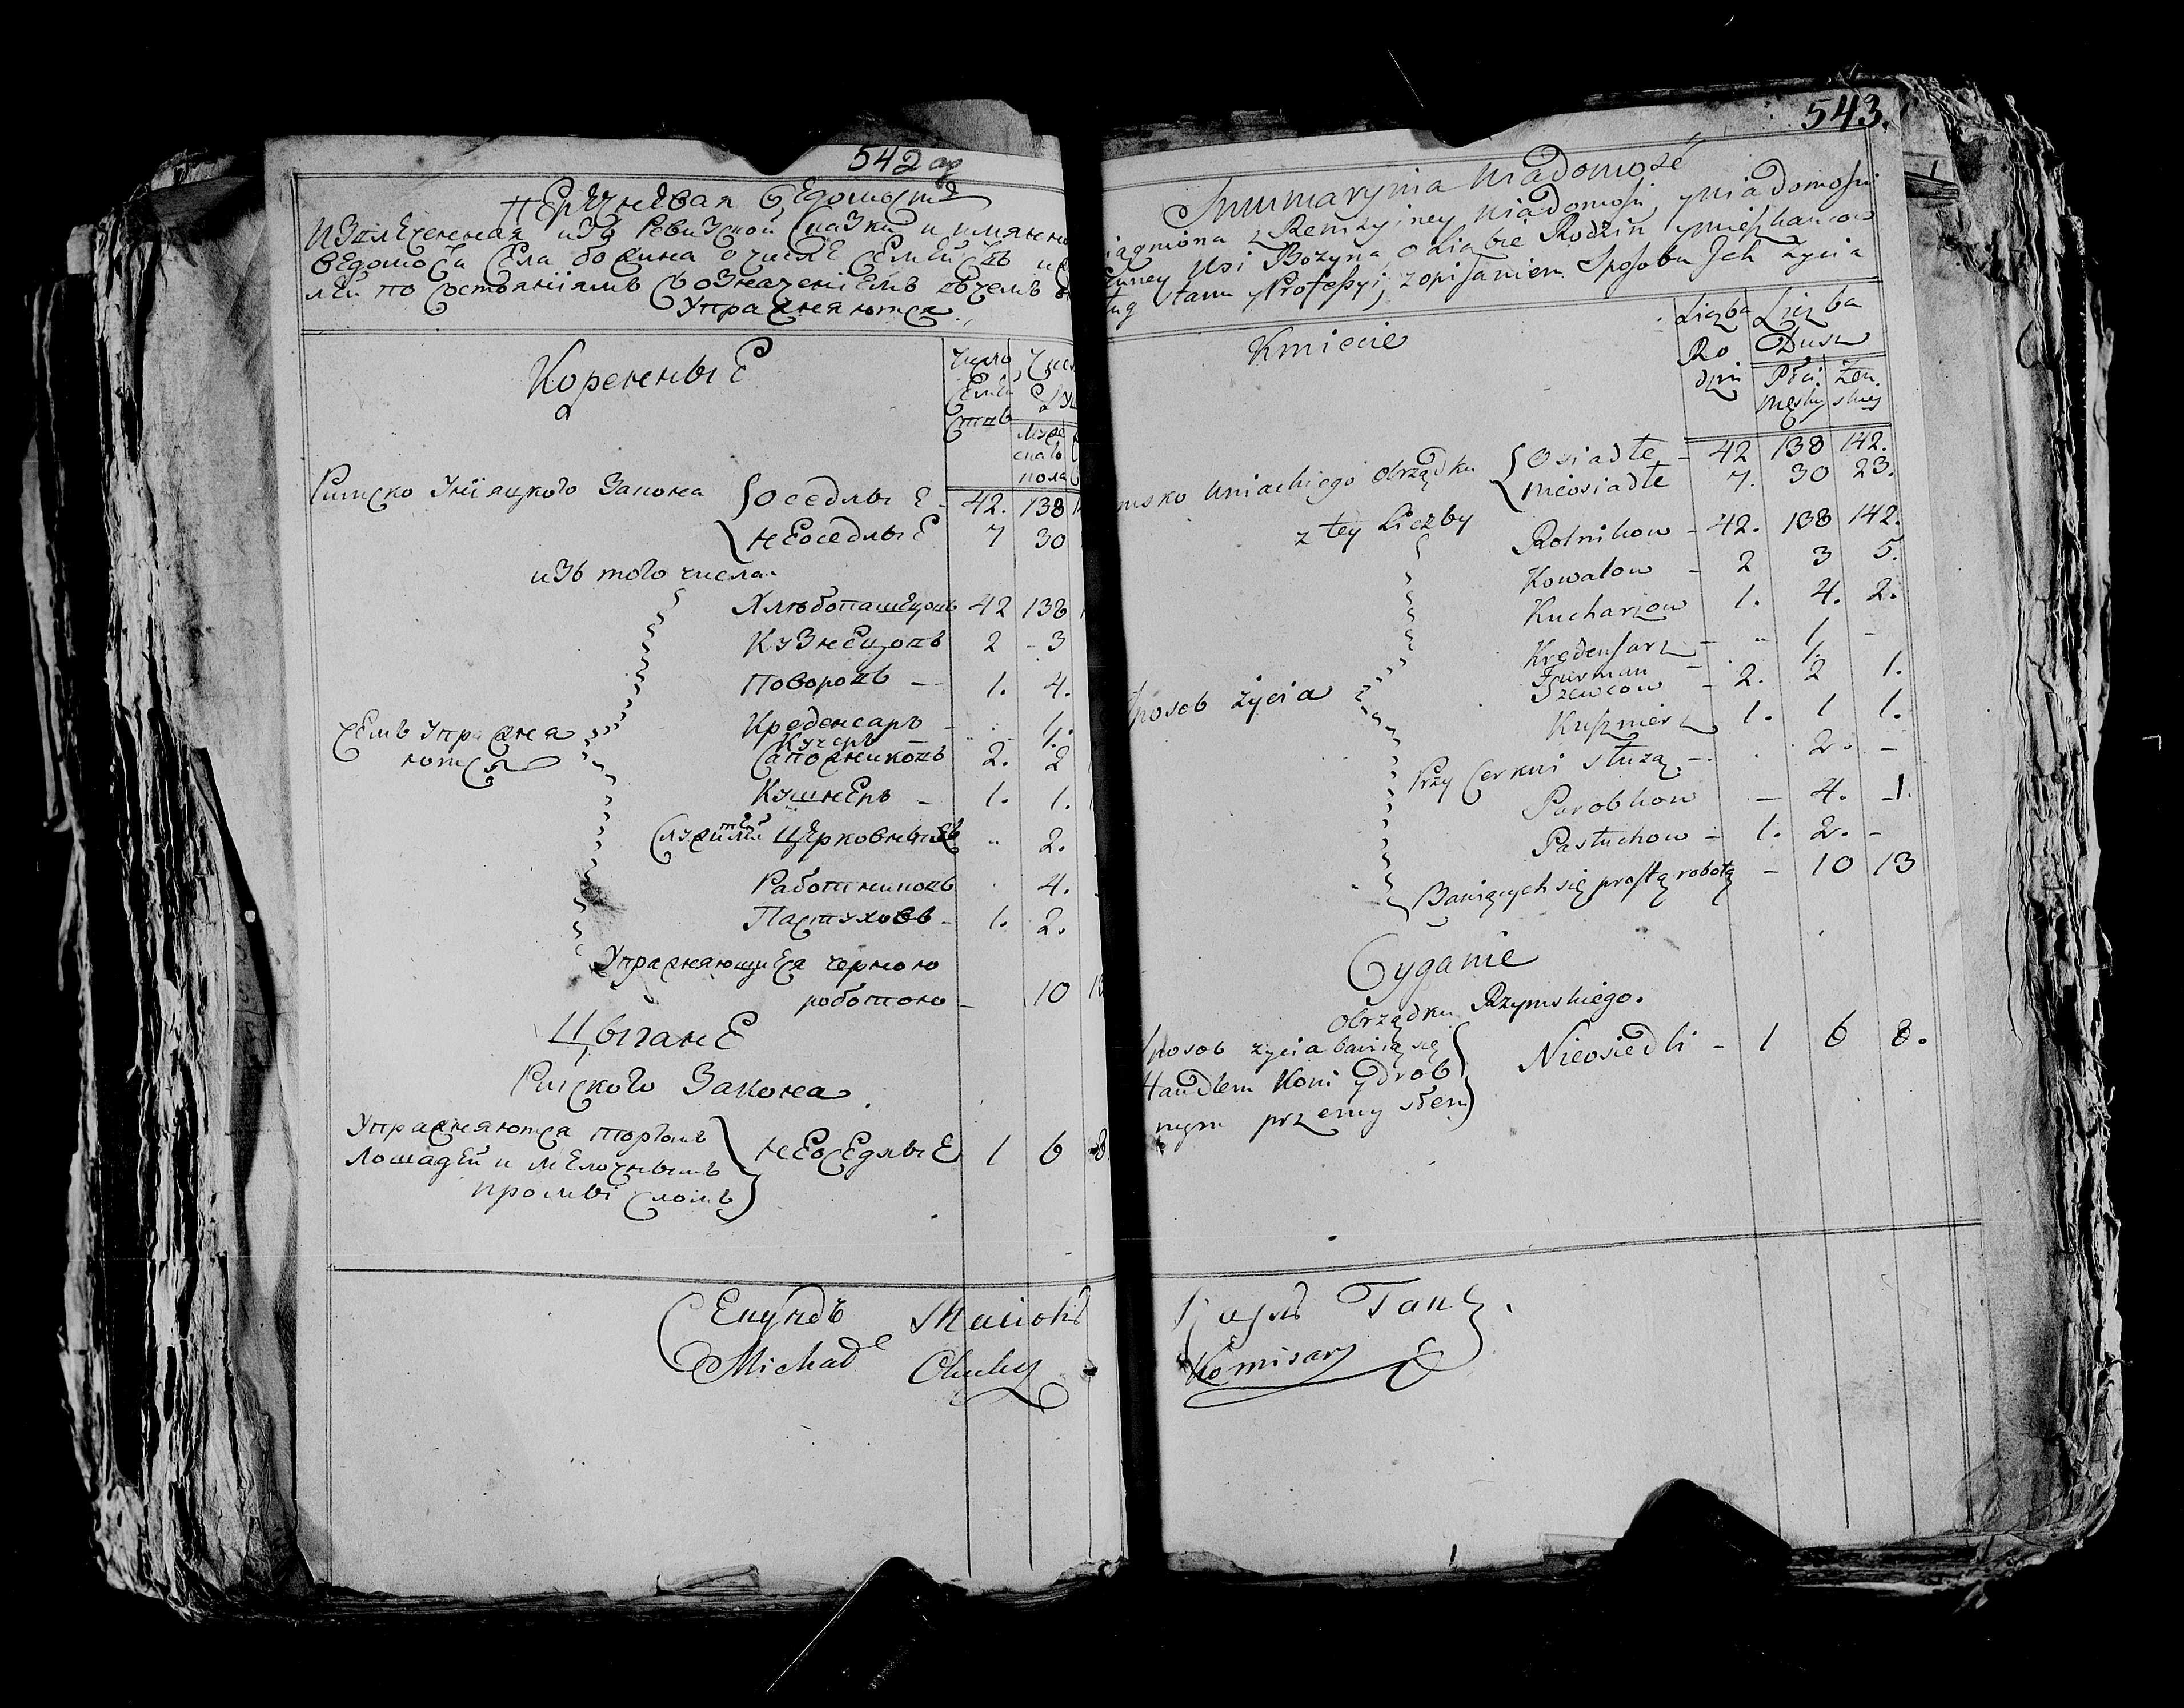 542 об
Перечневая Ведомость
Извлеченная изъ Ревизской Сказки и имянно
ведомости Села божина о числе Семействъ и
ли по состояніямъ Созначеніемъ въ чемъ
Упражняются.
Коренные
Число Семействъ
Числ
муже скаго пола
Римско Уніяцкого Закона { оседлые - 42. 138
неоседлые 7 30
изъ того числа.
Хлебопашецовъ 42 138
Кузнецовъ 2 - 3
Поворовъ - 1. 4.
Креденсаръ - 1.
Кучеръ - 1.
Сапожниковъ 2. 2
чемъ Упражня
ются
Кушнеръ - 1. 1.
Служителей Церковныхъ " 2.
Работниковъ 4.
Пастуховъ - 1. 2.
Упражняющиеся черною
роботою - 10 13
Цыгане
Римского Закона.
Упражняются торгомъ
Лошадей и мелочнымъ
промысломъ } неоседлые 1 6 8.
Michał
543.
Summaryina Wiadomosć
iągniona z Rewizyiney Wiadomości, y Wiadomości
ienney Wsi Bożyna o Liczbie Rodzin y mieszkancow
ług stanu y Professyi, z opisaniem Sposobu Ich Życia
Kmiecie
Liczba Ro dzin
Liczba Dusz
Płci. męsky
Żen. skiey
msko Uniackiego Obrządku { Osiadłe - 42 138 142.
Nieosiadłe 7. 30 23.
z tey Liczby
Rolnikow - 42. 138 142.
Kowalow - 2 3 5.
Kucharzow 1. 4. 2.
Kredensarz - " 1. -
Furman - 1.
Szewcow - 2. 2 1.
posob życia
Kuszmierz 1. 1 1.
Przy Cerkwi służą - . 2. -
Parobkow - 4. -1.
Pastuchow - 1. 2. -
Bawiących się prostą robotą - 10 13
Cyganie
Obrządku Rzymskiego.
posob życia bawią się
Handlem Koni y drob
nym przemysłem } Nieosiedli - 1 6 8.
Komisarz